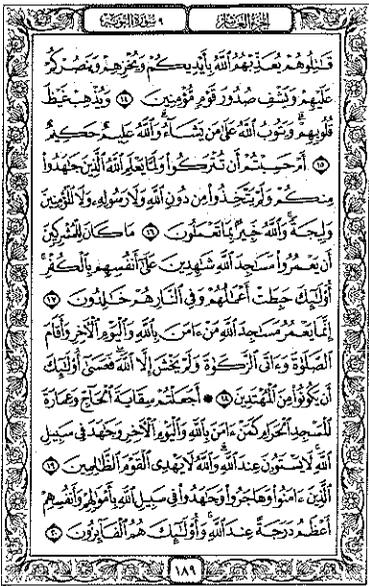 الجزء العاشر ٩ سورة التوبة
قَٰتِلُوهُمْ يُعَذِّبْهُمُ ٱللَّهُ بِأَيْدِيكُمْ وَيُخْزِهِمْ وَيَنصُرْكُمْ
عَلَيْهِمْ وَيَشْفِ صُدُورَ قَوْمٍ مُّؤْمِنِينَ ١٤ وَيُذْهِبْ غَيْظَ
قُلُوبِهِمْ ۗ وَيَتُوبُ ٱللَّهُ عَلَىٰ مَن يَشَآءُ ۗ وَٱللَّهُ عَلِيمٌ حَكِيمٌ
١٥ أَمْ حَسِبْتُمْ أَن تُتْرَكُوا۟ وَلَمَّا يَعْلَمِ ٱللَّهُ ٱلَّذِينَ جَٰهَدُوا۟
مِنكُمْ وَلَمْ يَتَّخِذُوا۟ مِن دُونِ ٱللَّهِ وَلَا رَسُولِهِۦ وَلَا ٱلْمُؤْمِنِينَ
وَلِيجَةً ۚ وَٱللَّهُ خَبِيرٌۢ بِمَا تَعْمَلُونَ ١٦ مَا كَانَ لِلْمُشْرِكِينَ
أَن يَعْمُرُوا۟ مَسَٰجِدَ ٱللَّهِ شَٰهِدِينَ عَلَىٰٓ أَنفُسِهِم بِٱلْكُفْرِ ۚ
أُو۟لَٰٓئِكَ حَبِطَتْ أَعْمَٰلُهُمْ وَفِى ٱلنَّارِ هُمْ خَٰلِدُونَ ١٧
إِنَّمَا يَعْمُرُ مَسَٰجِدَ ٱللَّهِ مَنْ ءَامَنَ بِٱللَّهِ وَٱلْيَوْمِ ٱلْءَاخِرِ وَأَقَامَ
ٱلصَّلَوٰةَ وَءَاتَى ٱلزَّكَوٰةَ وَلَمْ يَخْشَ إِلَّا ٱللَّهَ ۖ فَعَسَىٰٓ أُو۟لَٰٓئِكَ
أَن يَكُونُوا۟ مِنَ ٱلْمُهْتَدِينَ ١٨ ۞ أَجَعَلْتُمْ سِقَايَةَ ٱلْحَآجِّ وَعِمَارَةَ
ٱلْمَسْجِدِ ٱلْحَرَامِ كَمَنْ ءَامَنَ بِٱللَّهِ وَٱلْيَوْمِ ٱلْءَاخِرِ وَجَٰهَدَ فِى سَبِيلِ
ٱللَّهِ ۚ لَا يَسْتَوُۥنَ عِندَ ٱللَّهِ ۗ وَٱللَّهُ لَا يَهْدِى ٱلْقَوْمَ ٱلظَّٰلِمِينَ ١٩
ٱلَّذِينَ ءَامَنُوا۟ وَهَاجَرُوا۟ وَجَٰهَدُوا۟ فِى سَبِيلِ ٱللَّهِ بِأَمْوَٰلِهِمْ وَأَنفُسِهِمْ
أَعْظَمُ دَرَجَةً عِندَ ٱللَّهِ ۚ وَأُو۟لَٰٓئِكَ هُمُ ٱلْفَآئِزُونَ ٢٠
١٨٩